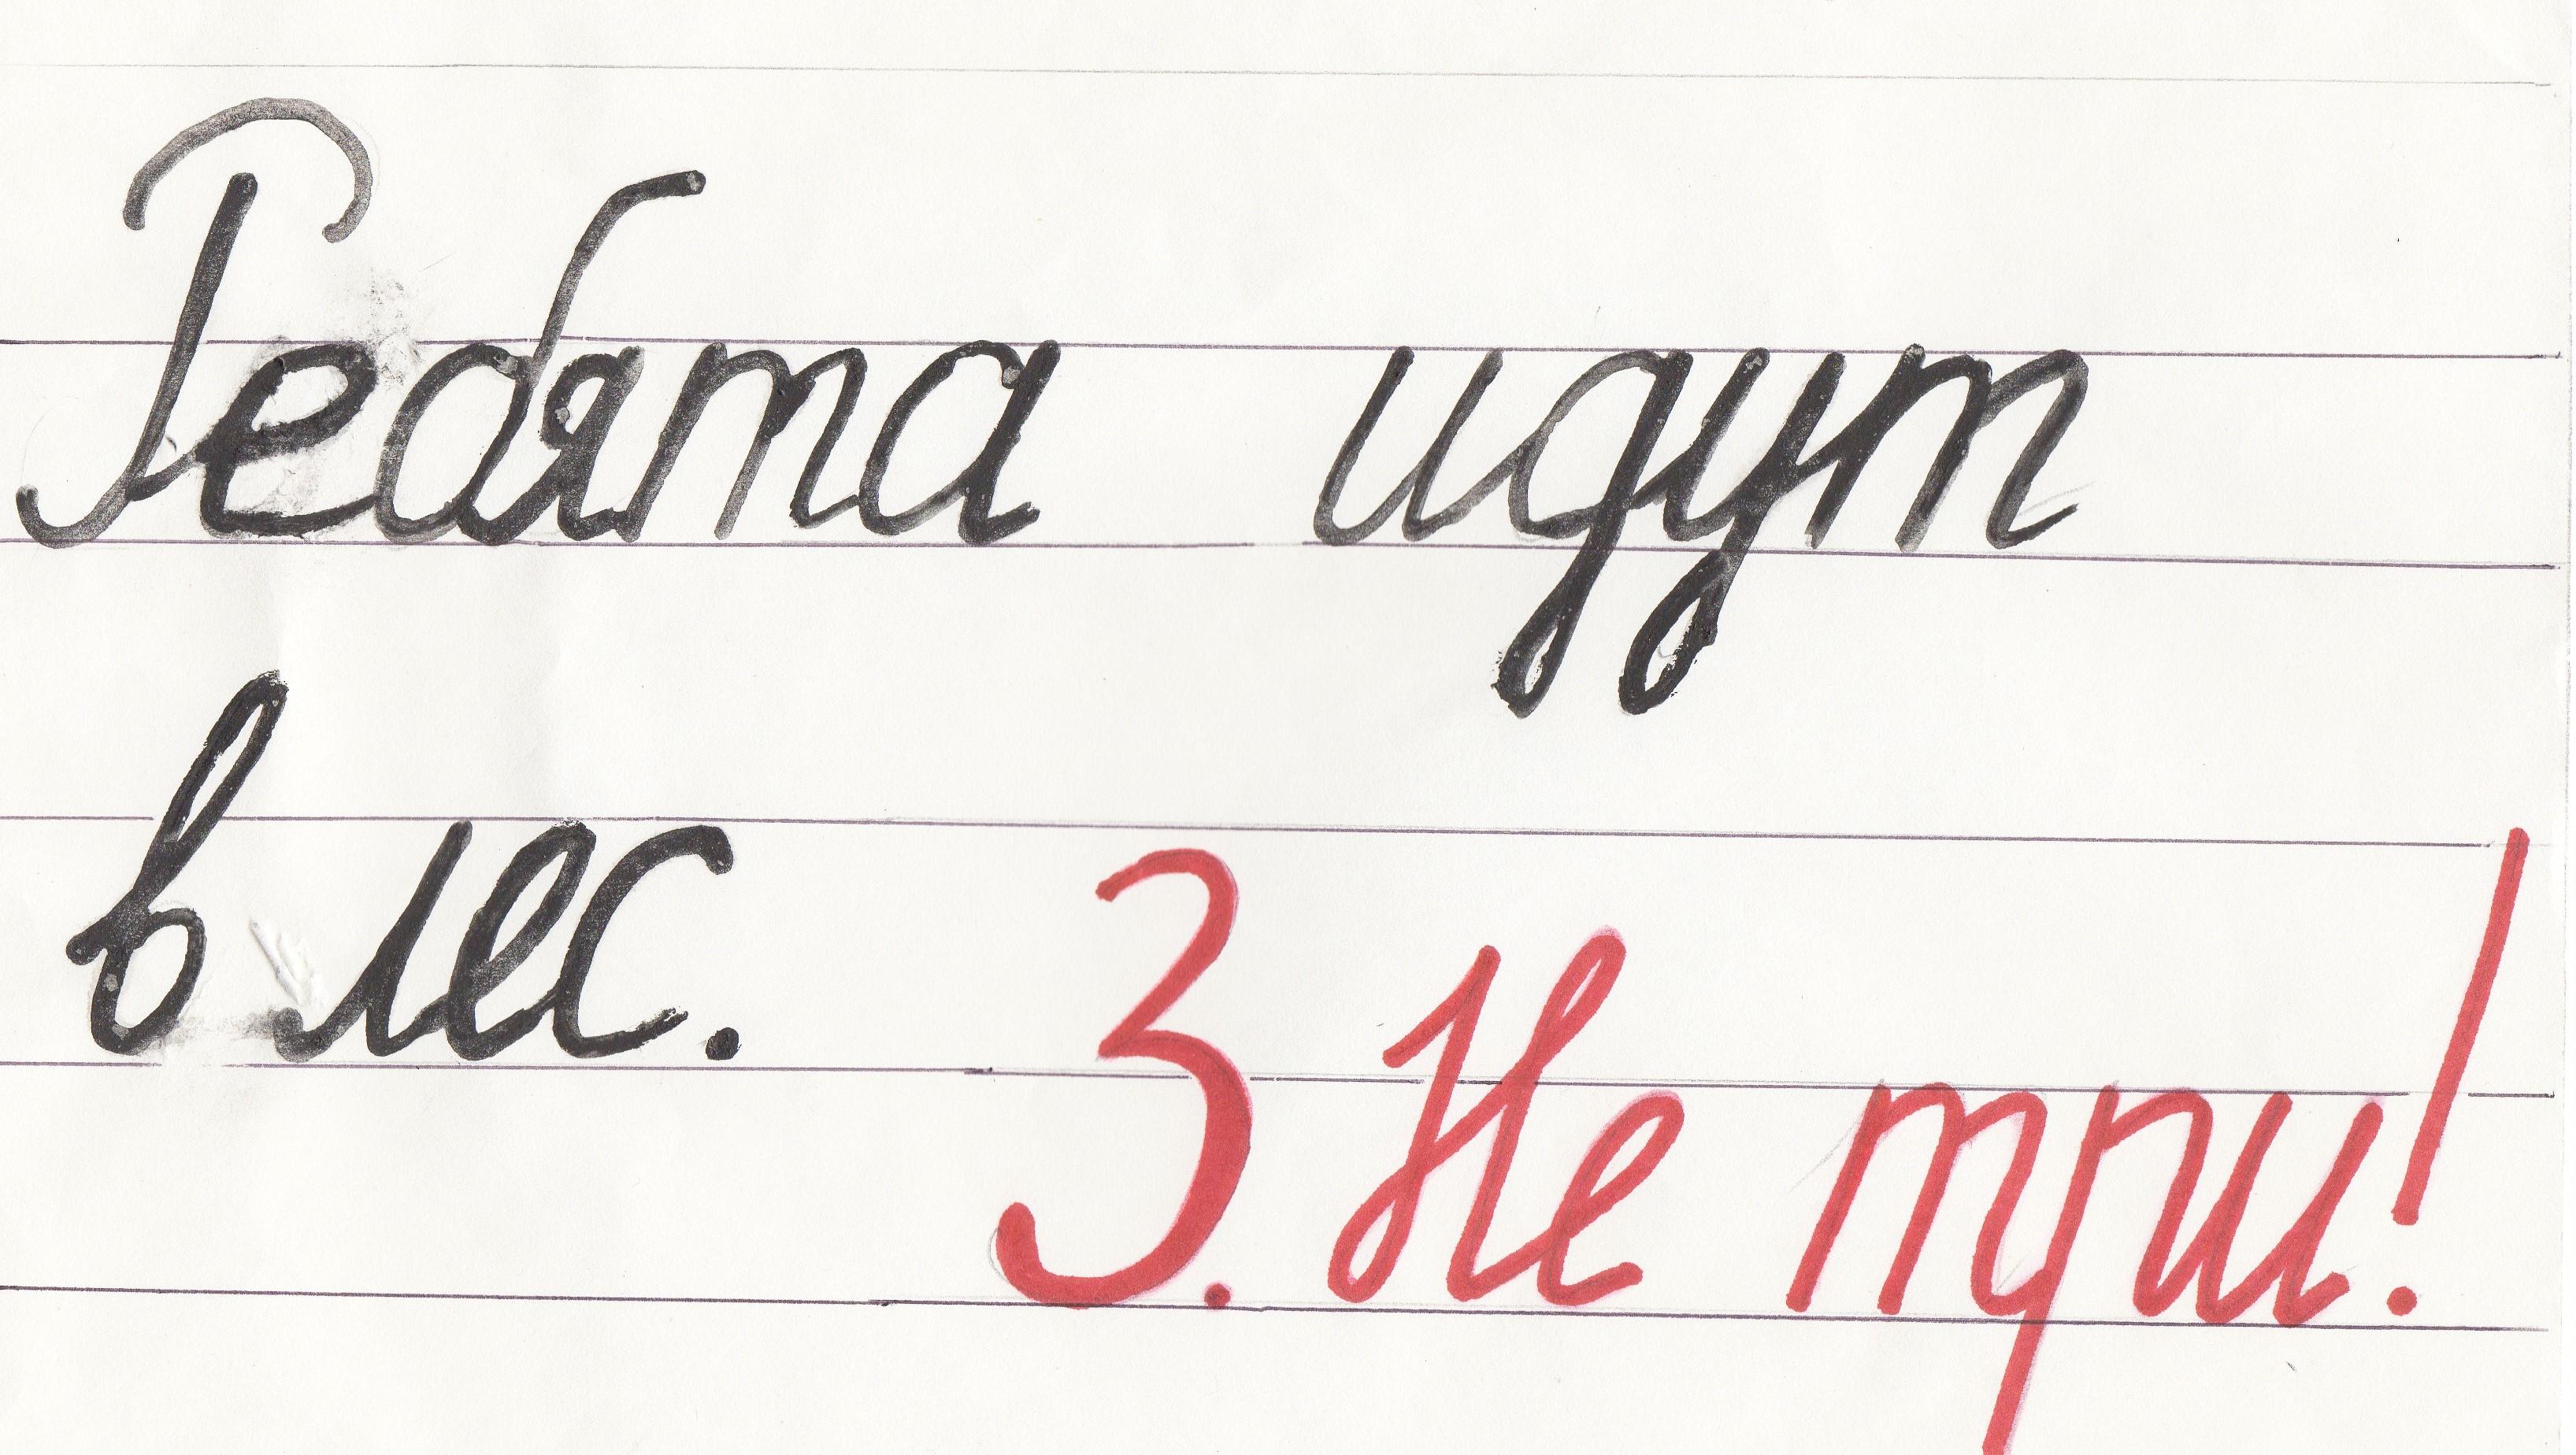 Ребята идут
в лес.
3. Не три!